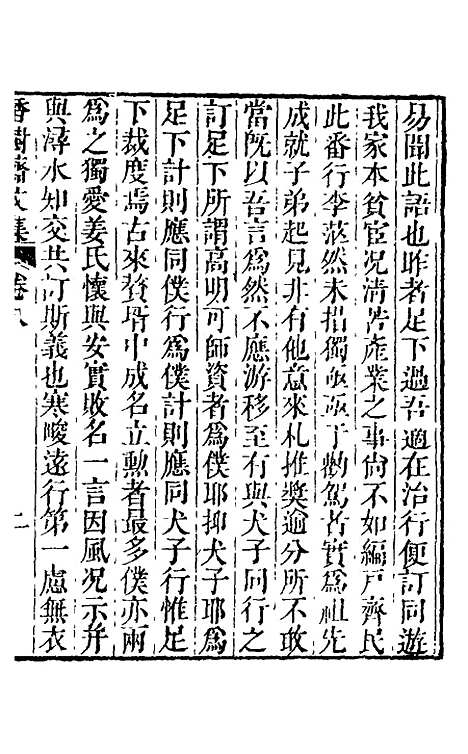 易聞此語也昨者足下過吾適在治行便訂同遊
我家本貧宦况清苦產業之事尚不如編戸齊民
此番行李茫然未措獨亟亟于勸駕者實爲祖先
成就子弟起見非有他意來札推奬逾分所不敢
當旣以吾言爲然不應游移至有與犬子同行之
訂足下所謂高明可師資者爲僕耶抑犬子耶爲
足下計則應同僕行爲僕計則應同犬子行惟足
下裁度焉古來贅壻中成名立勲者最多僕亦兩
爲之獨愛姜氏懷與安實敗名一言因風况示并
與潯水知交共訂斯義也寒畯遠行第一慮無衣
香樹齋文集 卷八 二